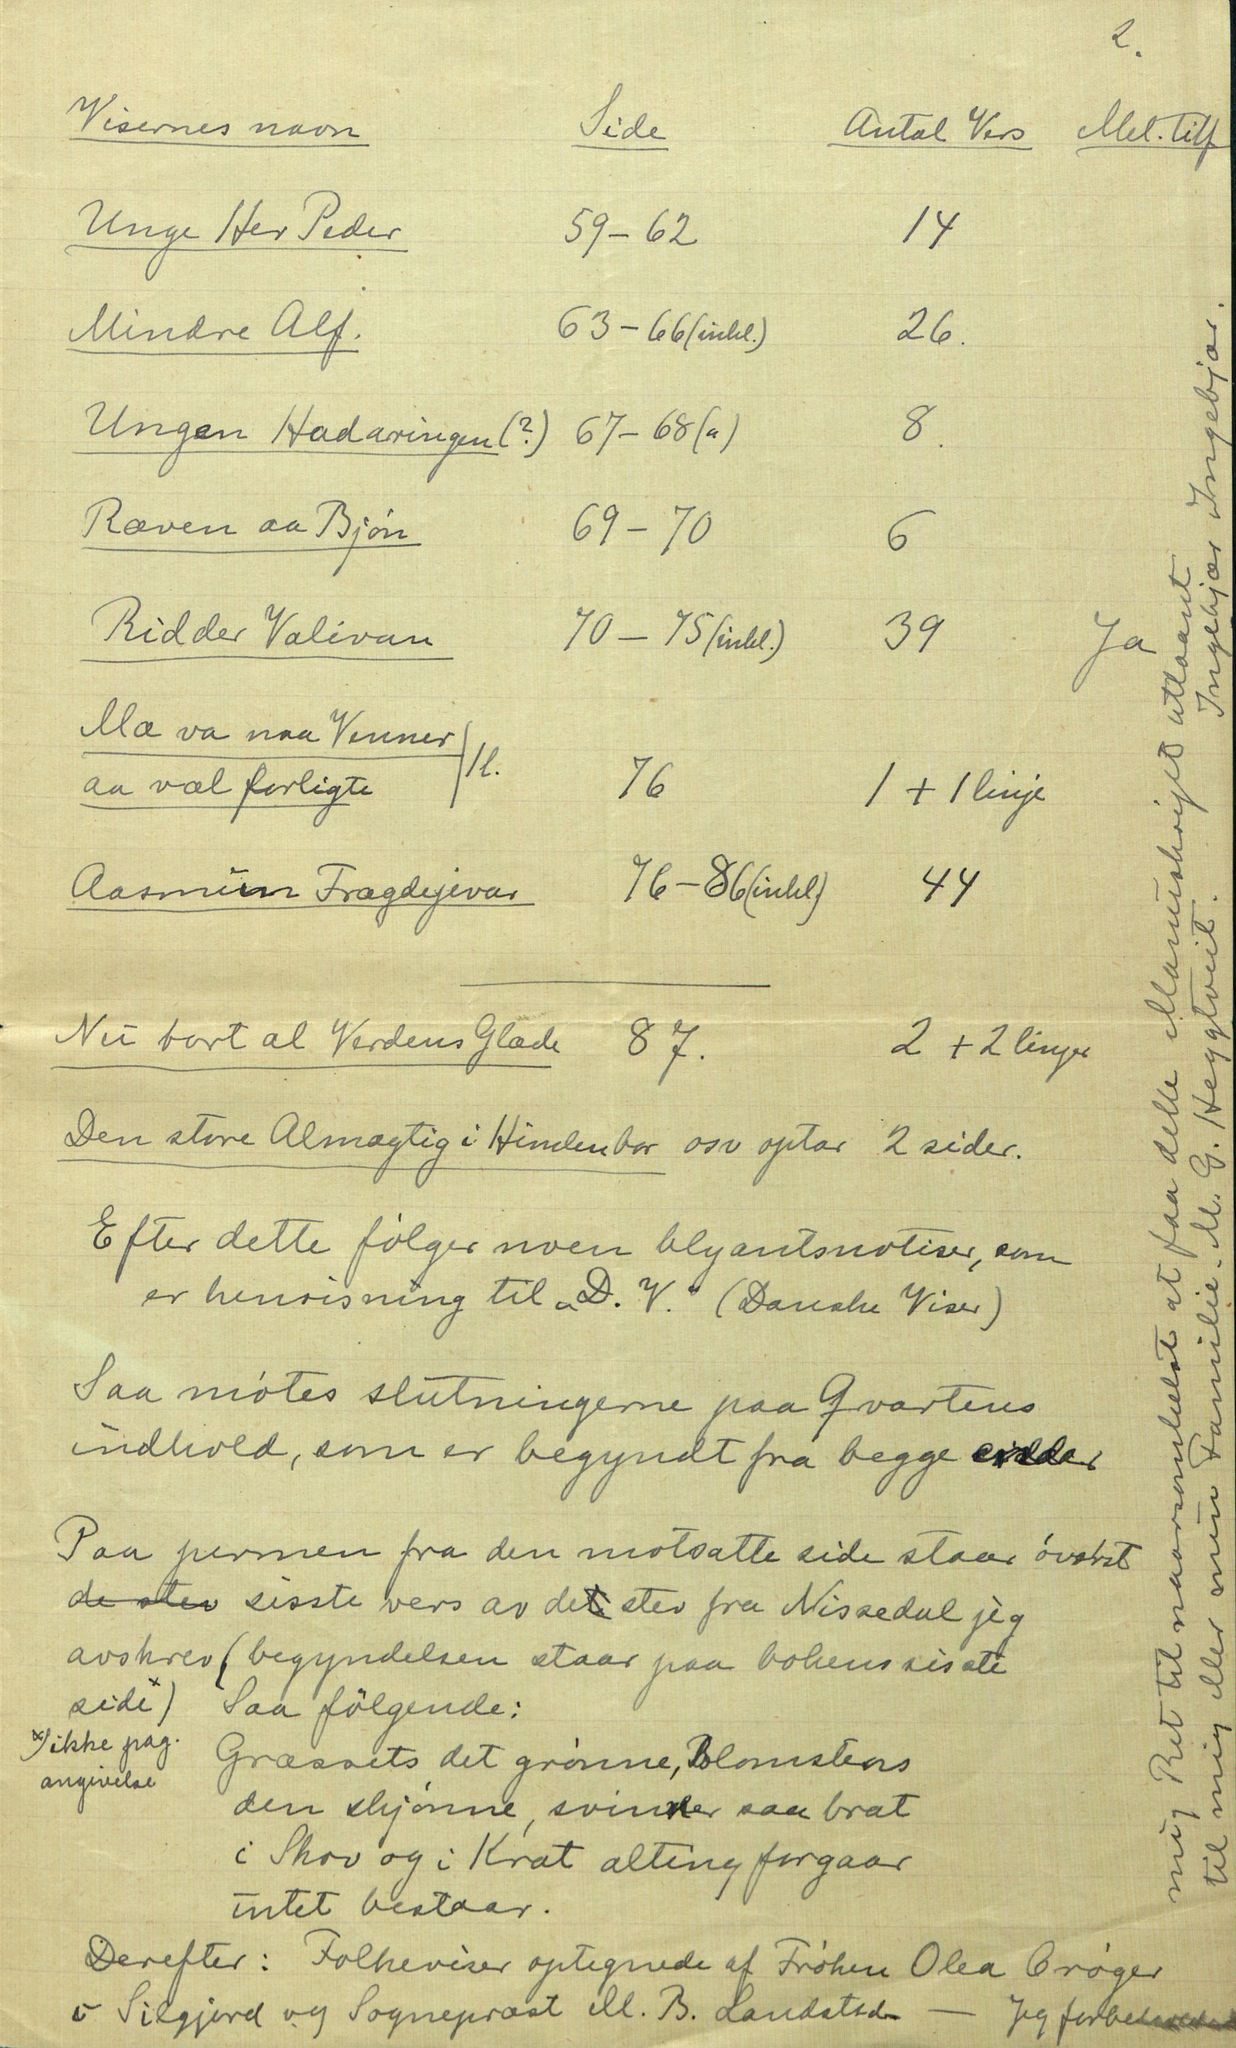 2.
Visernes navn Side Antal Vers Mel. tilf
Unge Her Peder 59–62 14
Mindre Alf. 63–66 (inkl.) 26.
Ungen Hadaringen (?) 67–68 (a) 8.
Ræven aa Bjón 69–70 6
Ridder Valivan 70–75 (inkl.) 39 Ja
Mæ va naa Venner
aa væl forligte 76 1 + 1 linje
Aasmūn Frægdejevar 76–86 (inkl.) 44
Nū bort al Verdens Glæde 87. 2 + 2 linjer
Den store Almægtig i Himlenbor osv optar 2 sider.
Efter dette følger noen blyantsnotiser, som
er henvisning til „D. V." (Danske Viser)
Saa mötes slūtningerne paa Qvartens
indhold, som er begyndt fra begge
Paa permen fra den motsatte side staar óverst
de stev sisste vers av det stev fra Nissedal jeg
avskrev (begyndelsen staar paa bokens sisste
side x) Saa fölgende:
x) ikke pag.
angivelse
Græssets det grónne, Blomstens
den skjónne, svinder saa brat
i Skov og i Krat alting forgaar
intet bestaar.
Derefter: Folkeviser optegnede af Fröken Olea Cröger
i Silgjord og Sogneprest M. B. Landstad — Jeg forbeholder
mig Ret til naarsomhelst at faa dette Manuskript utlaant
til mig eller min Familie. M. G. Heggtveit. Ingebjør Ingebjør.